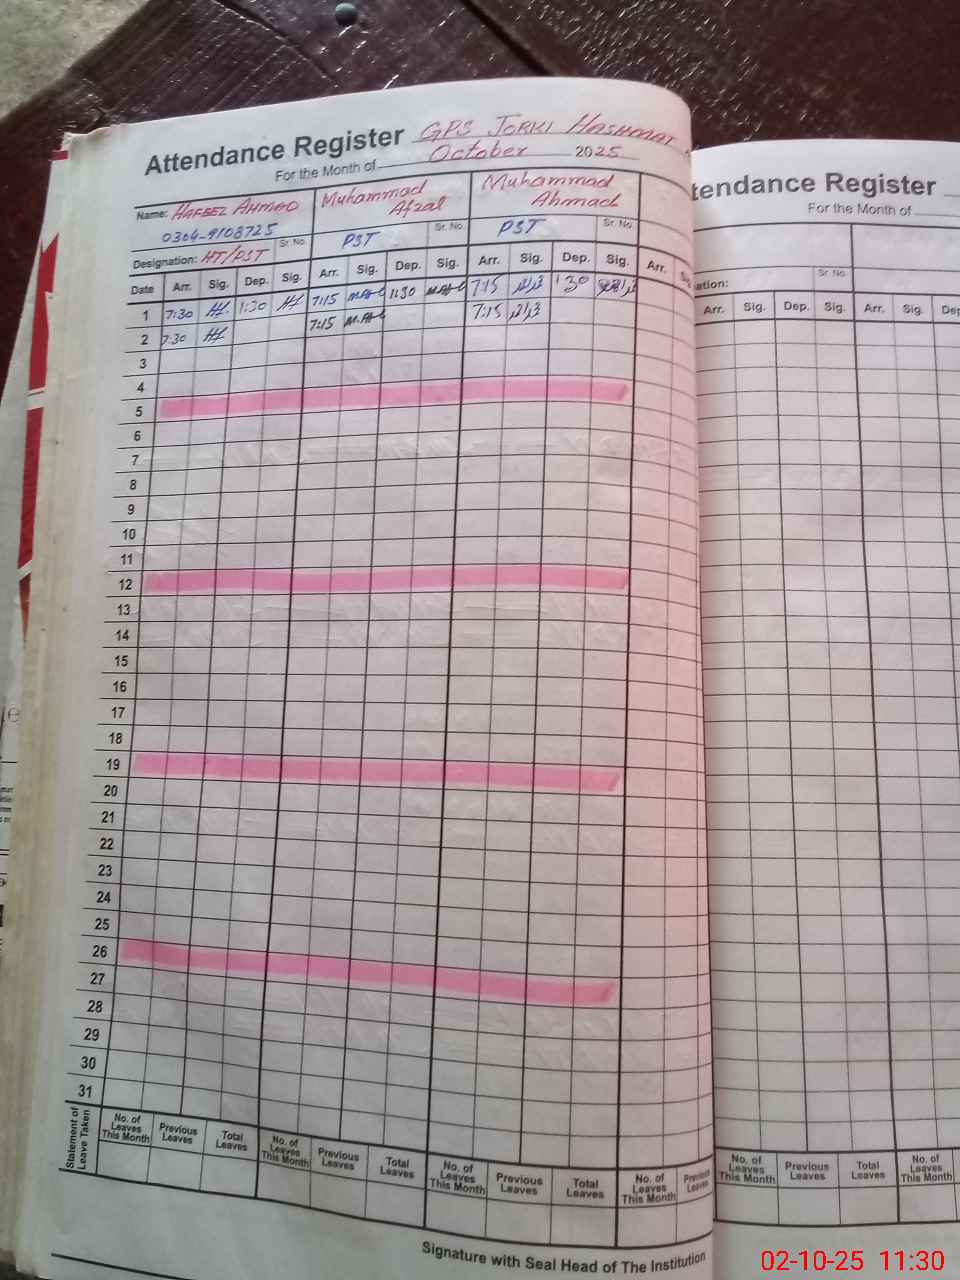 Attendance Register GPS JORKI HASHMAT
For the Month of October 2025
Name: HAFEEZ AHMAD
0304-9108725
Sr. No.
Designation: HT/PST
Muhammad
Afzal
PST
Sr. No.
Muhammad
Ahmad
PST
Sr. No.
Date Arr. Sig. Dep. Sig. Arr. Sig. Dep. Sig. Arr. Sig. Dep. Sig. Arr.
1 7:30 1:30 7:15 1:30 7:15 1:30
2 7:30 7:15 7:15
3
4
5
6
7
8
9
10
11
12
13
14
15
16
17
18
19
20
21
22
23
24
25
26
27
28
29
30
31
Statement of Leave Taken
No. of Leaves This Month Previous Leaves Total Leaves No. of Leaves This Month Previous Leaves Total Leaves No. of Leaves This Month Previous Leaves Total Leaves No. of Leaves This Month Previous Leaves
Signature with Seal Head of The Institution
tendance Register
For the Month of
Sr. No.
ation:
Arr. Sig. Dep. Sig. Arr. Sig. Dep
No. of Leaves This Month Previous Leaves Total Leaves No. of Leaves This Month
02-10-25 11:30